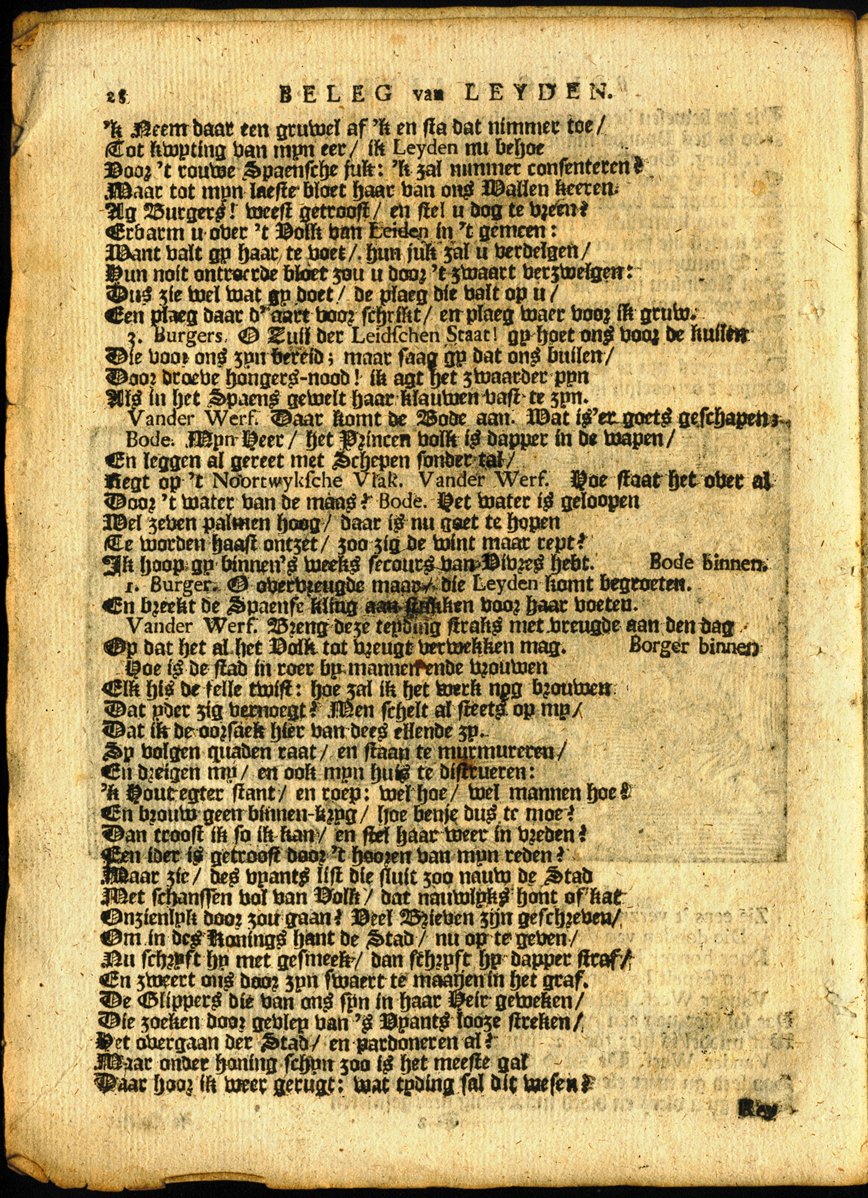 28 BELEG van LEYDEN.
'k Neem daar een gruwel af 'k en sta dat nimmer toe/
Tot kwyting van myn eer/ ik Leyden nu behoe
Voor 't rouwe Spaensche juk: 'k zal nimmer consenteren?
Maar tot myn laeste bloet haar van ons Wallen keeren.
Ag Burgers! weest getroost/ en stel u dog te vreen?
Erbarm u over 't Volk van Leiden in 't gemeen:
Want valt gy haar te voet/ hun juk zal u verdelgen/
Hun noit ontroerde bloet zou u door 't zwaart verzwelgen:
Dus zie wel wat gy doet/ de plaeg die valt op u/
Een plaeg daar d'aart voor schrikt/ en plaeg waer voor ik gruw.
2. Burgers. O Zuil der Leidschen Staat! gy hoet ons voor de kuilen
Die voor ons zyn bereid; maar saag gy dat ons builen/
Door droeve hongers-nood! ik agt het zwaarder pyn
Als in het Spaens gewelt haar klauwen vast te zyn.
Vander Werf. Daar komt de Bode aan. Wat is'er goets geschapen?
Bode. Myn Heer/ het Princen volk is dapper in de wapen/
En leggen al gereet met Schepen sonder tal/
Regt op 't Noortwyksche Vlak. Vander Werf. Hoe staat het over al
Door 't water van de maas? Bode. Het water is geloopen
Wel zeven palmen hoog/ daar is nu goet te hopen
Te worden haast ontzet/ zoo zig de wint maar rept?
Ik hoop gy binnen's weeks secours van Vivres hebt. Bode binnen.
1. Burger. O overvreugde maar/ die Leyden komt begroeten.
En breekt de Spaense kling aan stukken voor haar voeten.
Vander Werf. Breng deze teyding straks met vreugde aan den dag
Op dat het al het Volk tot vreugt verwekken mag. Borger binnen
Hoe is de stad in roer by mannen ende vrouwen
Elk his de felle twist: hoe zal ik het werk nog brouwen
Dat yder zig vernoegt? Men schelt al steets op my/
Dat ik de oorsaek hier van dees ellende zy.
Sy volgen quaden raat/ en staan te murmureren/
En dreigen my/ en ook myn huis te distrueren:
'k Hout egter stant/ en roep: wel hoe/ wel mannen hoe?
En brouw geen binnen-kryg/ hoe benje dus te moe?
Dan troost ik so ik kan/ en stel haar weer in vreden?
Een ider is getroost door 't hooren van myn reden?
Maar zie/ des vyants list die sluit zoo nauw de Stad
Met schanssen vol van Volk/ dat nauwlyks hont of kat
Onzienlyk door zou gaan? Veel Brieven zijn geschreven/
Om in des Konings hant de Stad/ nu op te geven/
Nu schryft hy met gesmeek/ dan schryft hy dapper straf/
En zweert ons door zyn swaert te maaijen in het graf.
De Glippers die van ons syn in haar Heir geweken/
Die zoeken door gevley van 's Vyants looze streken/
Het overgaan der Stad/ en pardoneren al?
Maar onder honing schyn zoo is het meeste gal
Daar hoor ik weer gerugt: wat tyding sal dit wesen?
Rey